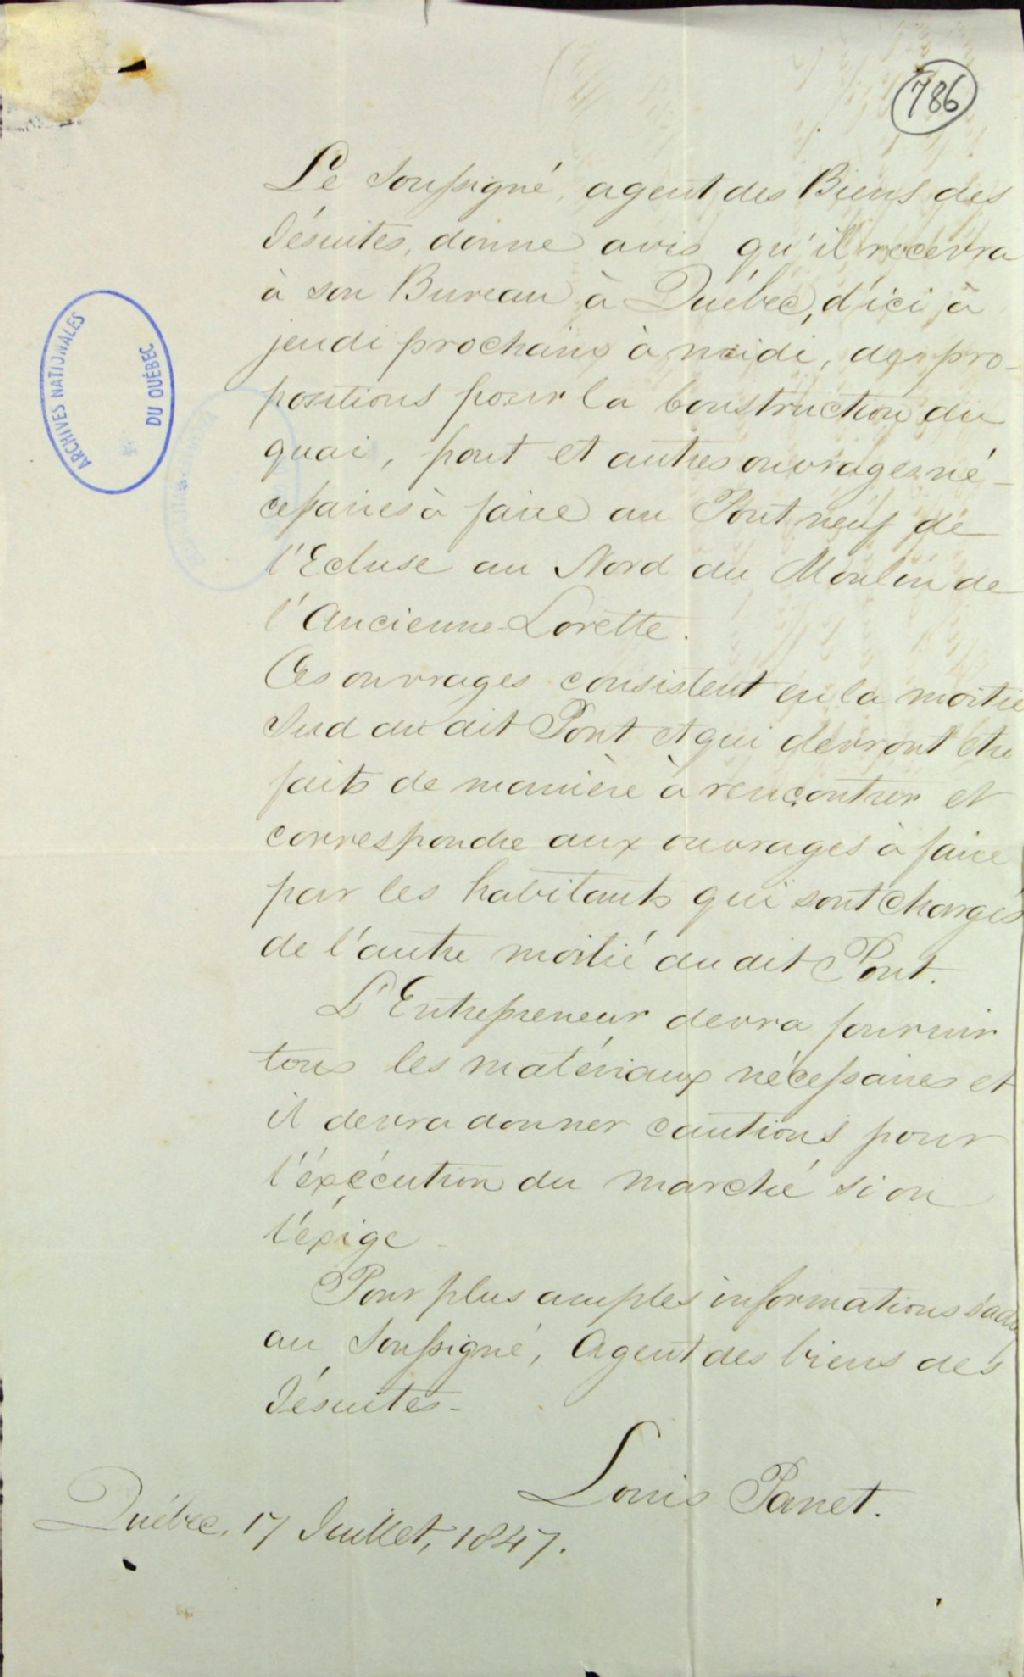 786
Le Soussigné, agent des Biens des
Jésuites, donne avis qu'il recevra
à son Bureau à Québec, d'ici à
jeudi prochain à midi, des pro-
positions pour la Construction du
quai, pont et autres ouvrages né-
cessaires à faire au Pont neuf de
l'Ecluse au Nord du Moulin de
l'Ancienne-Lorette.
Ces ouvrages consistent en la moitié
Sud du dit Pont et qui devront être
faits de manière à rencontrer et
correspondre aux ouvrages à faire
par les habitants qui sont chargés
de l'autre moitié du dit Pont.
L'Entrepreneur devra fournir
tous les matériaux nécessaires et
il devra donner cautions pour
l'éxécution du marché si on
l'éxige
Pour plus amples informations s'ad
au Soussigné, Agent des biens des
Jésuites-
Louis Panet.
Québec, 17 Juillet, 1847.
ARCHIVES NATIONALES
DU QUÉBEC